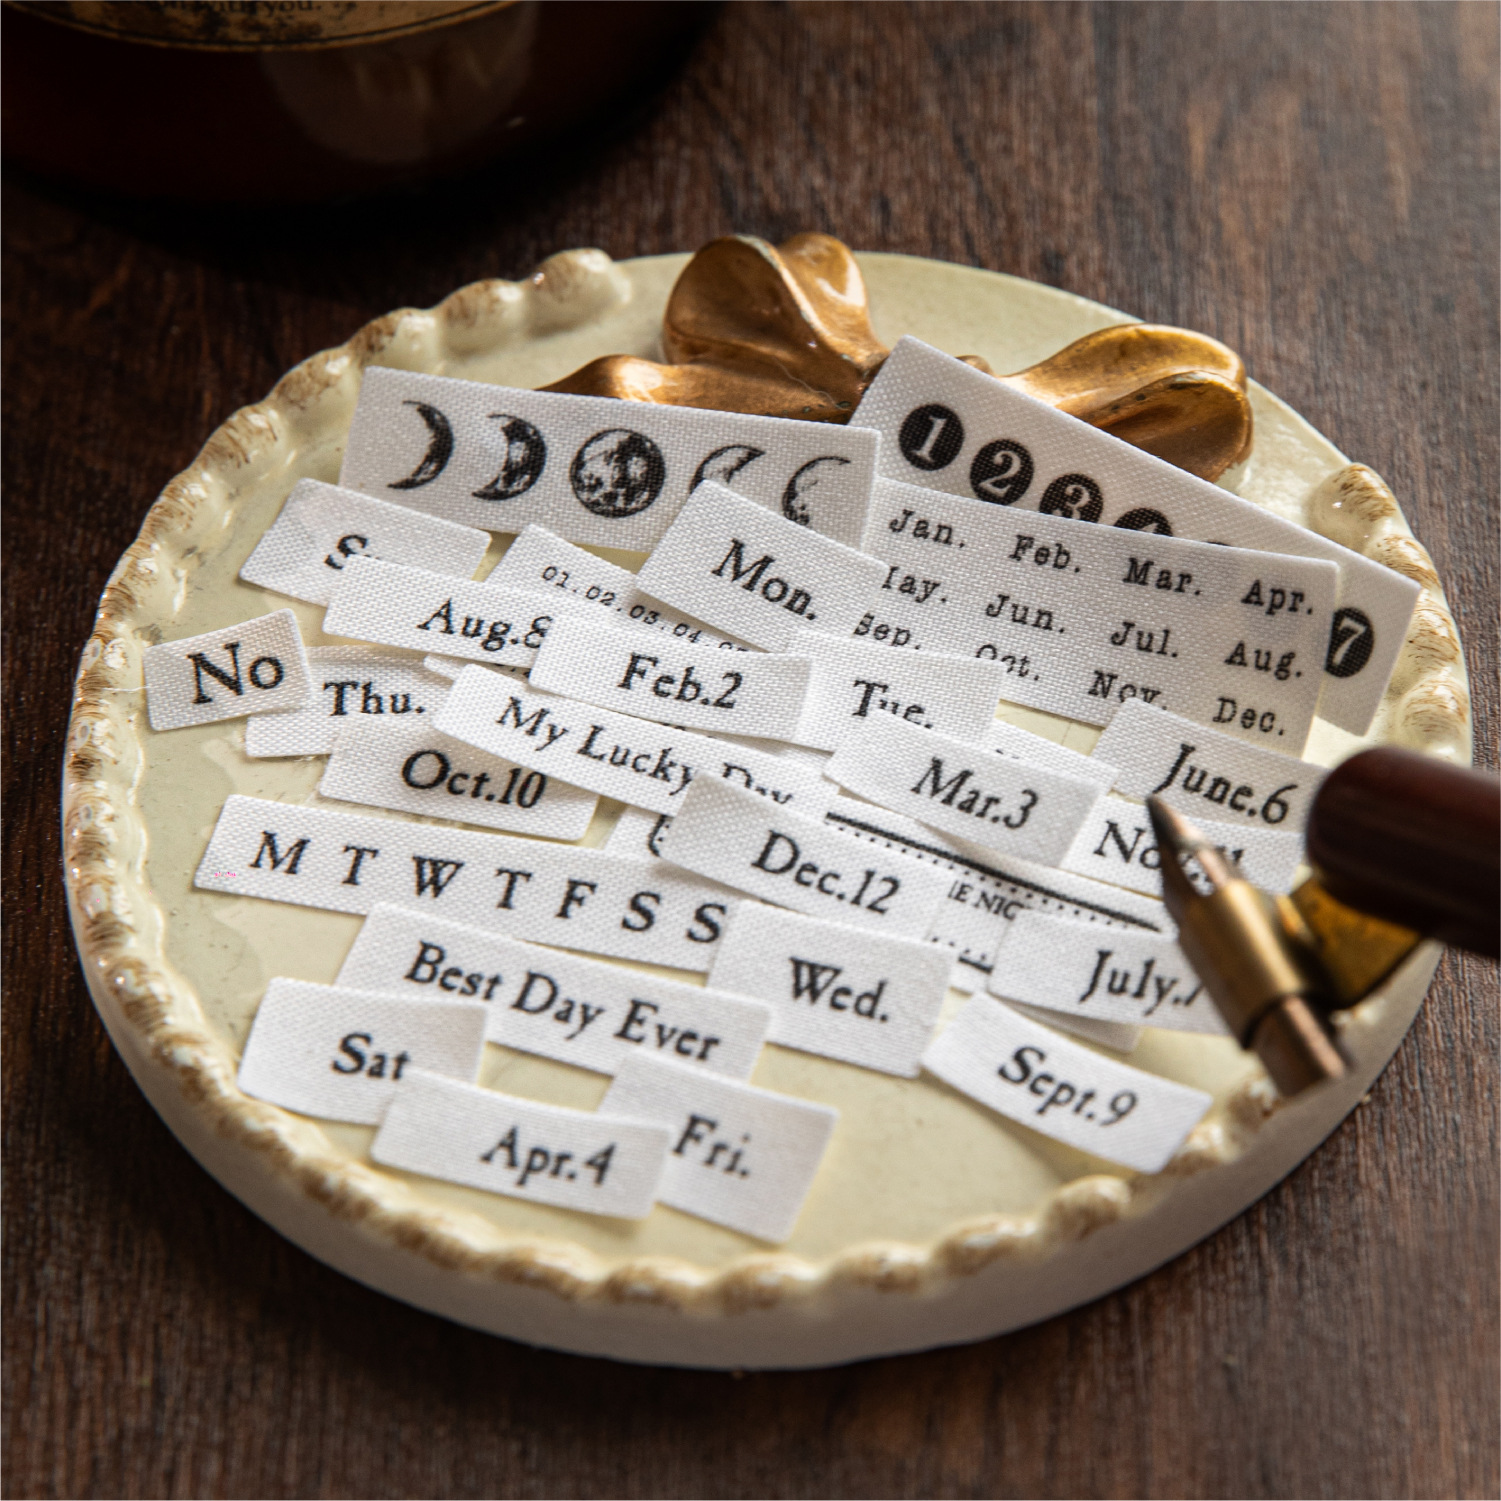 with you.
1 2 3 4
7
Jan. Feb. Mar. Apr.
ay. Jun. Jul. Aug.
Sep. Oct. Nov. Dec.
S
Mon.
01.02.03.04.05
Aug.8
No
Thu.
Feb.2
Tue.
My Lucky Day
Oct.10
Mar.3
June.6
Dec.12
M T W T F S S
E NIG
July.7
Best Day Ever
Wed.
Sat
Sept.9
Apr.4
Fri.